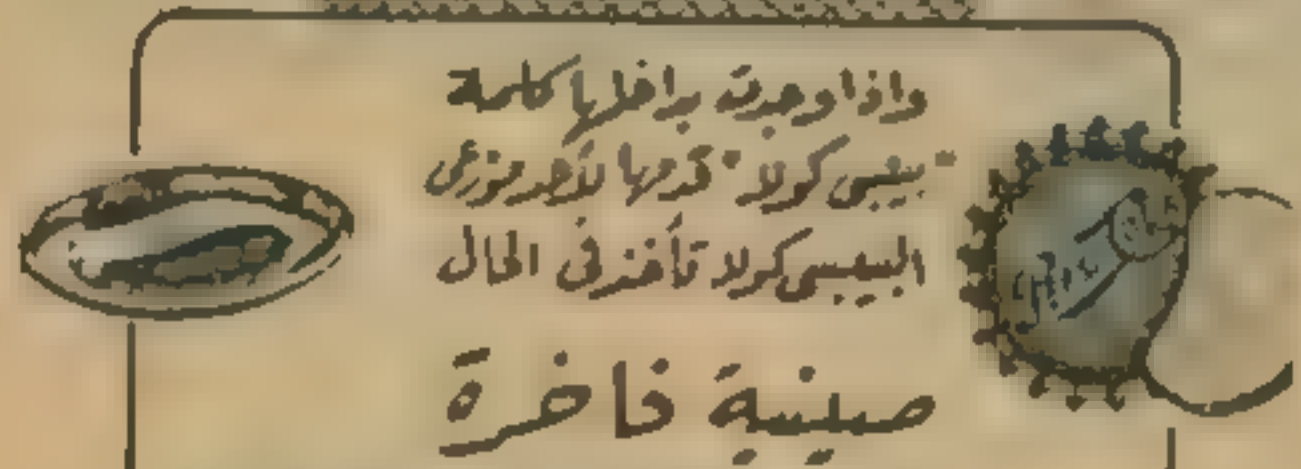 واذا وجدت بداخلها كلمة
"بيبسى كولا" قدمها لأحد موزعى
البيبسى كولا تأخذ فى الحال
صينية فاخرة